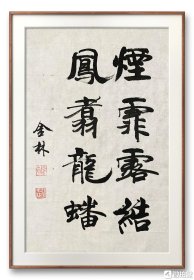 煙霏露結
鳳翥龍蟠
金林